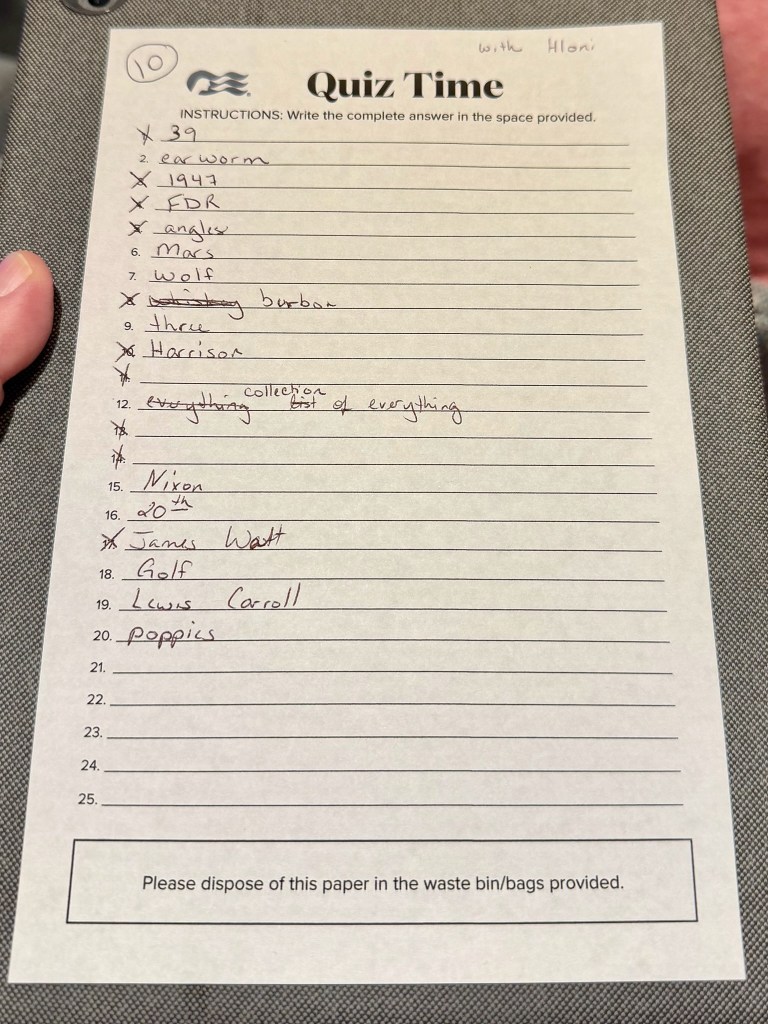 with Hloni
10
Quiz Time
INSTRUCTIONS: Write the complete answer in the space provided.
39
2. earworm
1947
FDR
angles
6. Mars
7. wolf
whiskey burbon
9. three
Harrison
12. everything collection list of everything
15. Nixon
16. 20th
James Watt
18. Golf
19. Lewis Carroll
20. poppies
21.
22.
23.
24.
25.
Please dispose of this paper in the waste bin/bags provided.